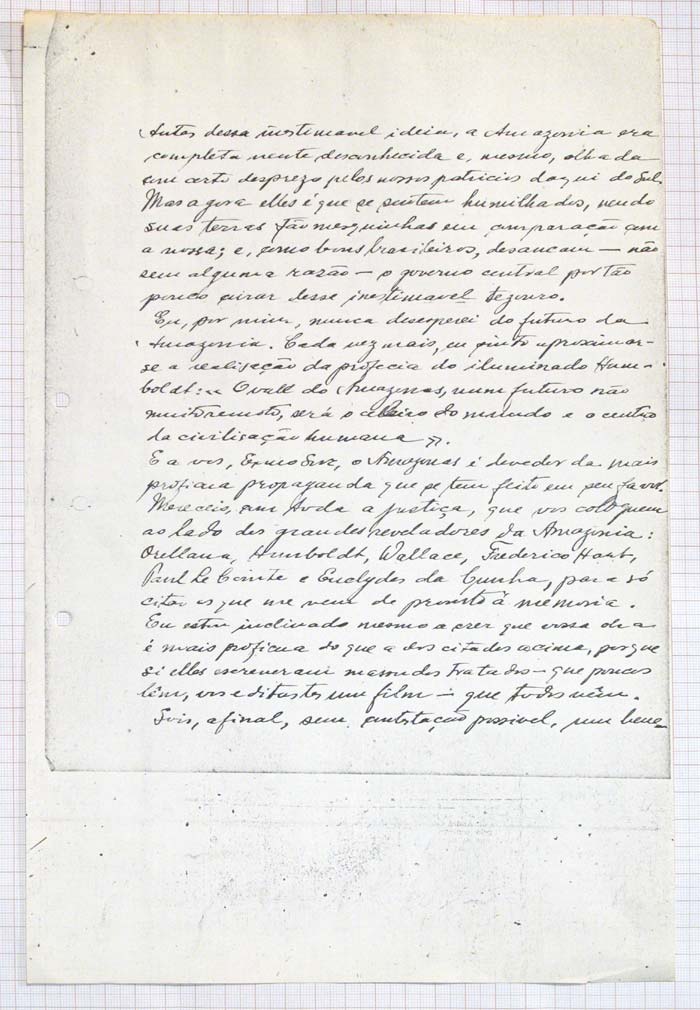 Antes dessa inestimavel ideia, a Amazonia era
completamente desconhecida e, mesmo, olhada
com certo desprezo pelos nossos patricios daqui do Sul.
Mas agora elles é que se sentem humilhados, vendo
suas terras tão mesquinhas em comparação com
a nossa; e, como bons brasileiros, desancam — não
sem alguma razão — o governo central por tão
pouco curar desse inestimavel tezouro.
Eu, por mim, nunca desesperei do futuro da
Amazonia. Cada vez mais, eu sinto aproximar-
se a realisação da profecia do illuminado Hum-
boldt: « O vall do Amazonas, num futuro não
muito remoto, será o celeiro do mundo e o centro
da civilisação humana ».
E a vos, Exmo Snr, o Amazonas é devedor da mais
proficua propaganda que se tem feito em seu favor.
Mereceis, com toda a justiça, que vos coloquem
ao lado dos grandes reveladores da Amazonia:
Orellana, Humboldt, Wallace, Frederico Hart,
Paul Le Cointe e Euclydes da Cunha, para só
citar os que me vem de pronto á memoria.
Eu estou inclinado mesmo a crer que vossa obra
é mais proficua do que a dos citados acima, porque
si elles escreveram massudos tratados — que poucos
lêm, vos editastes um film — que todos vêem.
Sois, afinal, sem contestação possivel, um bene-